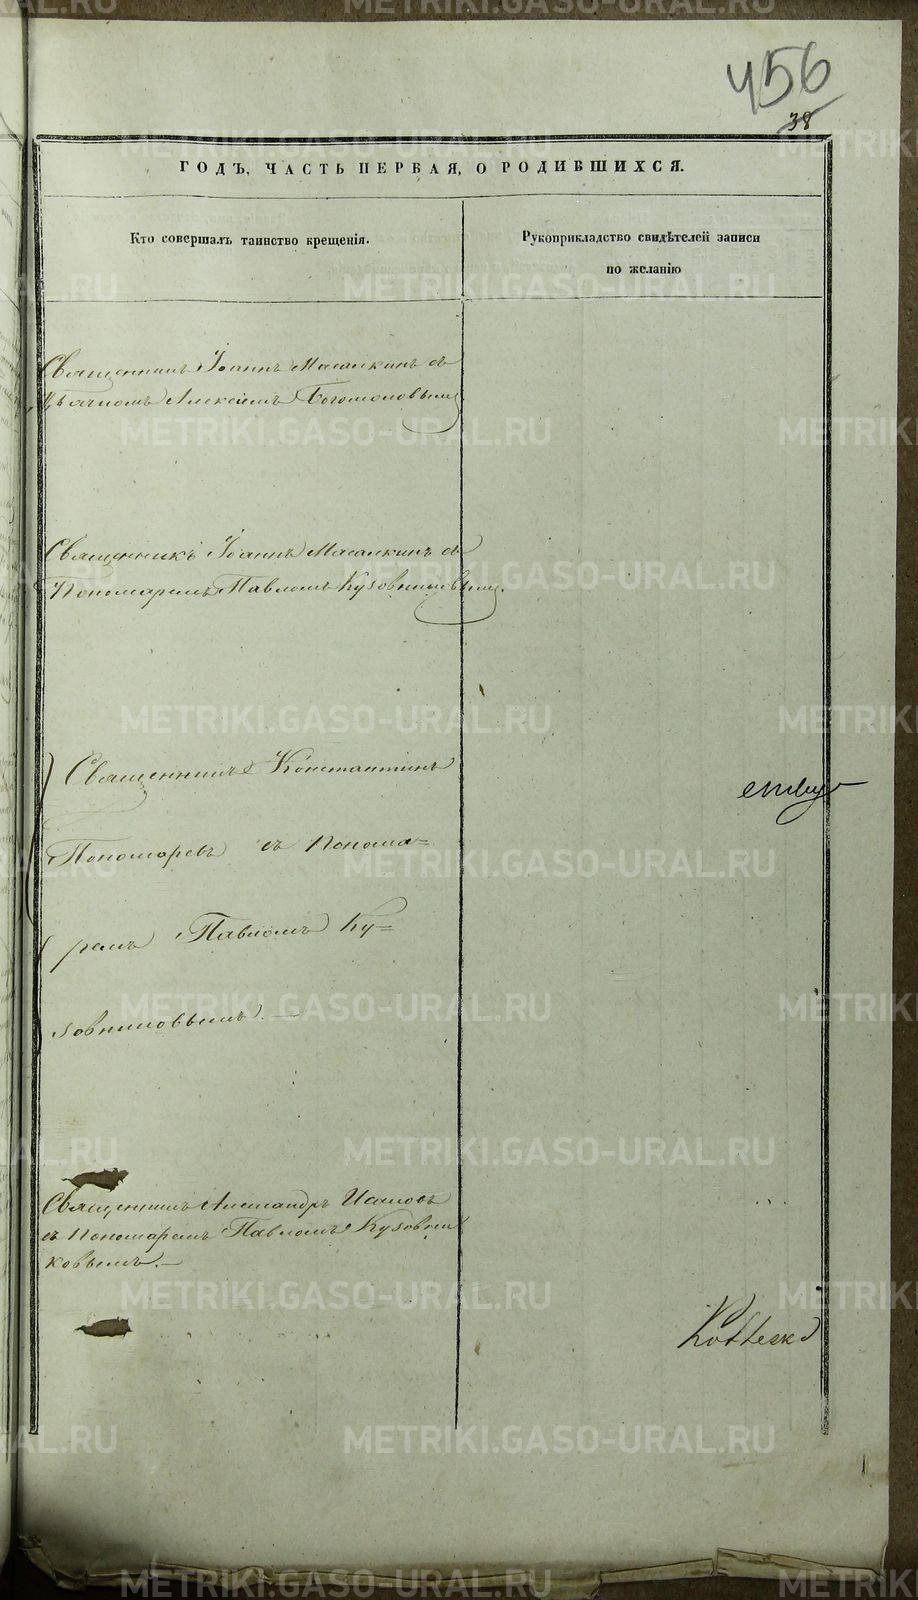 456
38
ГОДЪ, ЧАСТЬ ПЕРВАЯ, О РОДИВШИХСЯ.
Кто совершалъ таинство крещенія.
Рукоприкладство свидѣтелей записи
по желанію
Священникъ Іоаннъ Масалкинъ съ
Дьячкомъ Алексѣемъ Богомоловымъ
Священникъ Іоаннъ Масалкинъ съ
Пономаремъ Павломъ Кузовниковымъ.
Священникъ Константинъ
Пономаревъ съ Понома=
ремъ Павломъ Ку=
зовниковымъ.—
Священникъ Александръ
съ Пономаремъ Павломъ Кузовни
ковымъ.—
METRIKI.GASO-URAL.RU